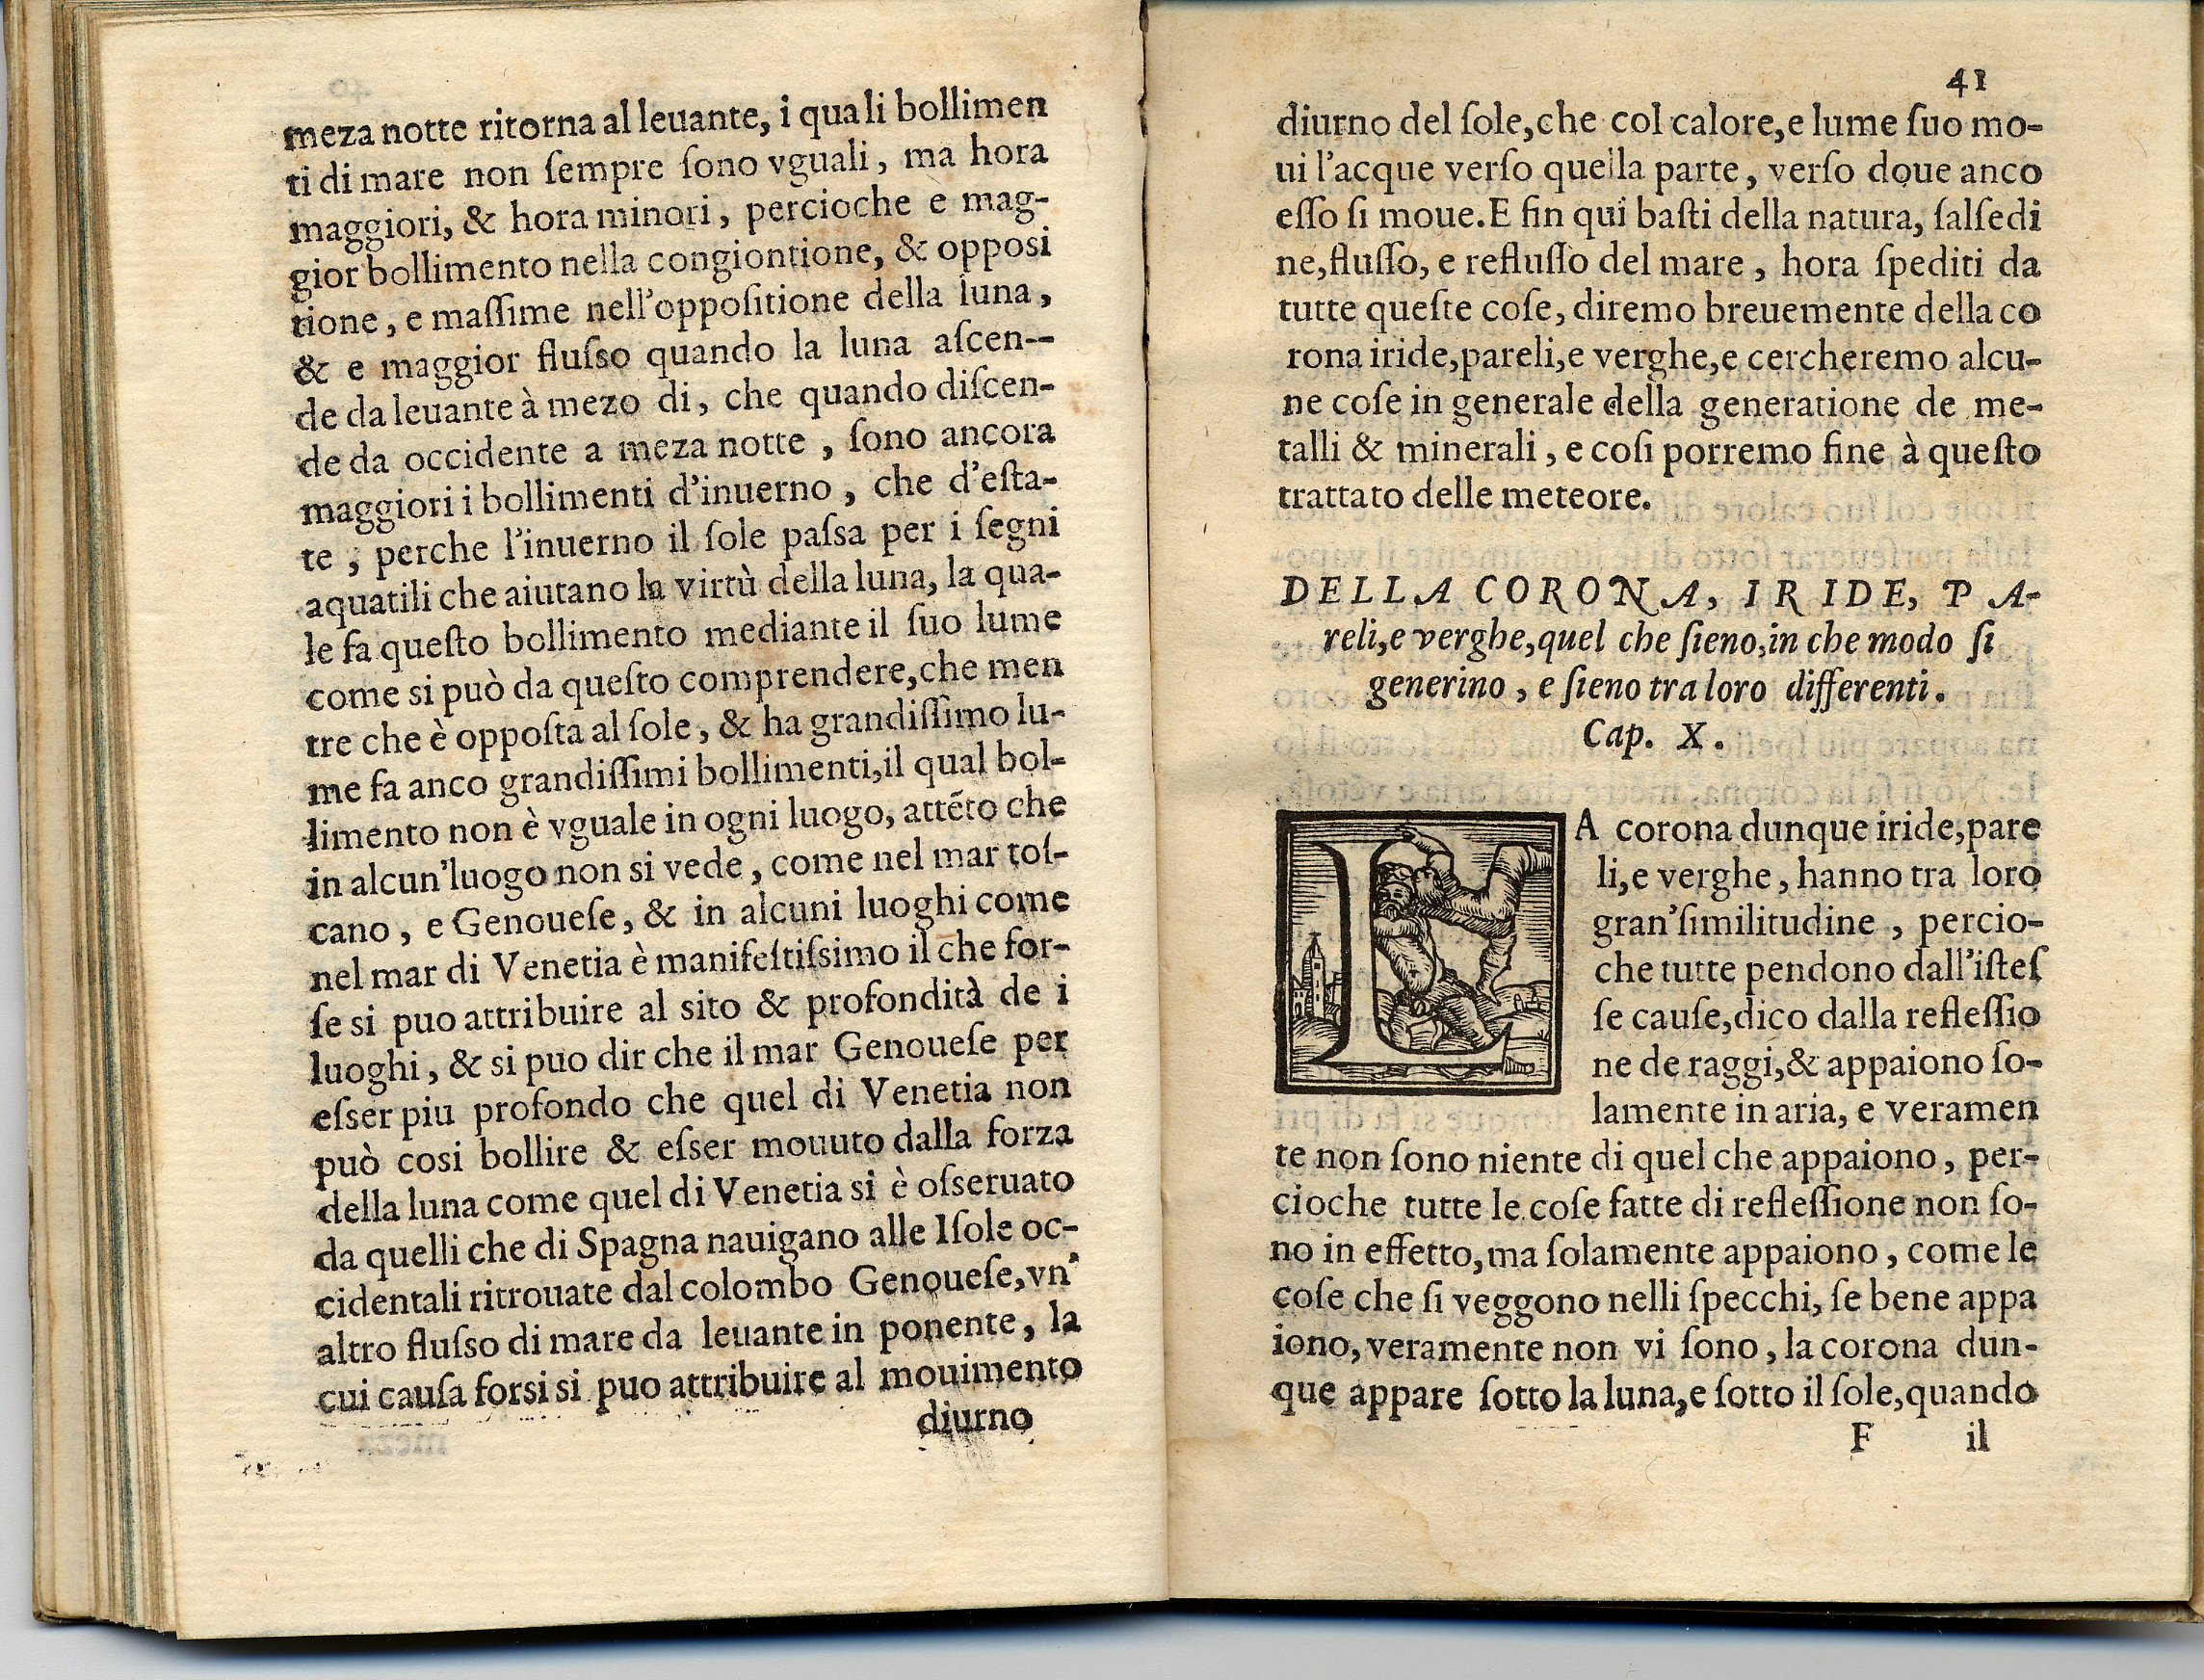 meza notte ritorna al leuante, i quali bollimen
ti di mare non ſempre ſono vguali, ma hora
maggiori, & hora minori, percioche e mag-
gior bollimento nella congiontione, & opposi
tione, e maſſime nell'oppoſitione della luna,
& e maggior fluſso quando la luna aſcen--
de da leuante à mezo di, che quando diſcen-
de da occidente a meza notte, ſono ancora
maggiori i bollimenti d'inuerno, che d'eſta-
te; perche l'inuerno il ſole paſsa per i ſegni
aquatili che aiutano la virtù della luna, la qua-
le fa queſto bollimento mediante il ſuo lume
come si può da queſto comprendere, che men
tre che è oppoſta al ſole, & ha grandiſſimo lu-
me fa anco grandiſſimi bollimenti, il qual bol-
limento non è vguale in ogni luogo, attẽto che
in alcun'luogo non si vede, come nel mar toſ-
cano, e Genoueſe, & in alcuni luoghi come
nel mar di Venetia è manifeſtiſsimo il che for-
ſe si puo attribuire al sito & profondità de i
luoghi, & si puo dir che il mar Genoueſe per
eſser piu profondo che quel di Venetia non
può cosi bollire & eſser mouuto dalla forza
della luna come quel di Venetia si è oſseruato
da quelli che di Spagna nauigano alle Iſole oc-
cidentali ritrouate dal colombo Genoueſe, vn'
altro fluſso di mare da leuante in ponente, la
cui cauſa forsi si puo attribuire al mouimento
diurno
41
diurno del ſole, che col calore, e lume ſuo mo-
ui l'acque verſo quella parte, verſo doue anco
eſſo ſi moue. E fin qui baſti della natura, ſalſedi
ne, fluſſo, e refluſſo del mare, hora ſpediti da
tutte queſte coſe, diremo breuemente della co
rona iride, pareli, e verghe, e cercheremo alcu-
ne coſe in generale della generatione de me-
talli & minerali, e coſi porremo fine à queſto
trattato delle meteore.
DELLA CORONA, IRIDE, PA-
reli, e verghe, quel che ſieno, in che modo ſi
generino, e ſieno tra loro differenti.
Cap. X.
LA corona dunque iride, pare
li, e verghe, hanno tra loro
gran'ſimilitudine, percio-
che tutte pendono dall'iſteſ
ſe cauſe, dico dalla refleſſio
ne de raggi, & appaiono ſo-
lamente in aria, e veramen
te non ſono niente di quel che appaiono, per-
cioche tutte le coſe fatte di refleſſione non ſo-
no in effetto, ma ſolamente appaiono, come le
coſe che ſi veggono nelli ſpecchi, ſe bene appa
iono, veramente non vi ſono, la corona dun-
que appare ſotto la luna, e ſotto il ſole, quando
F il